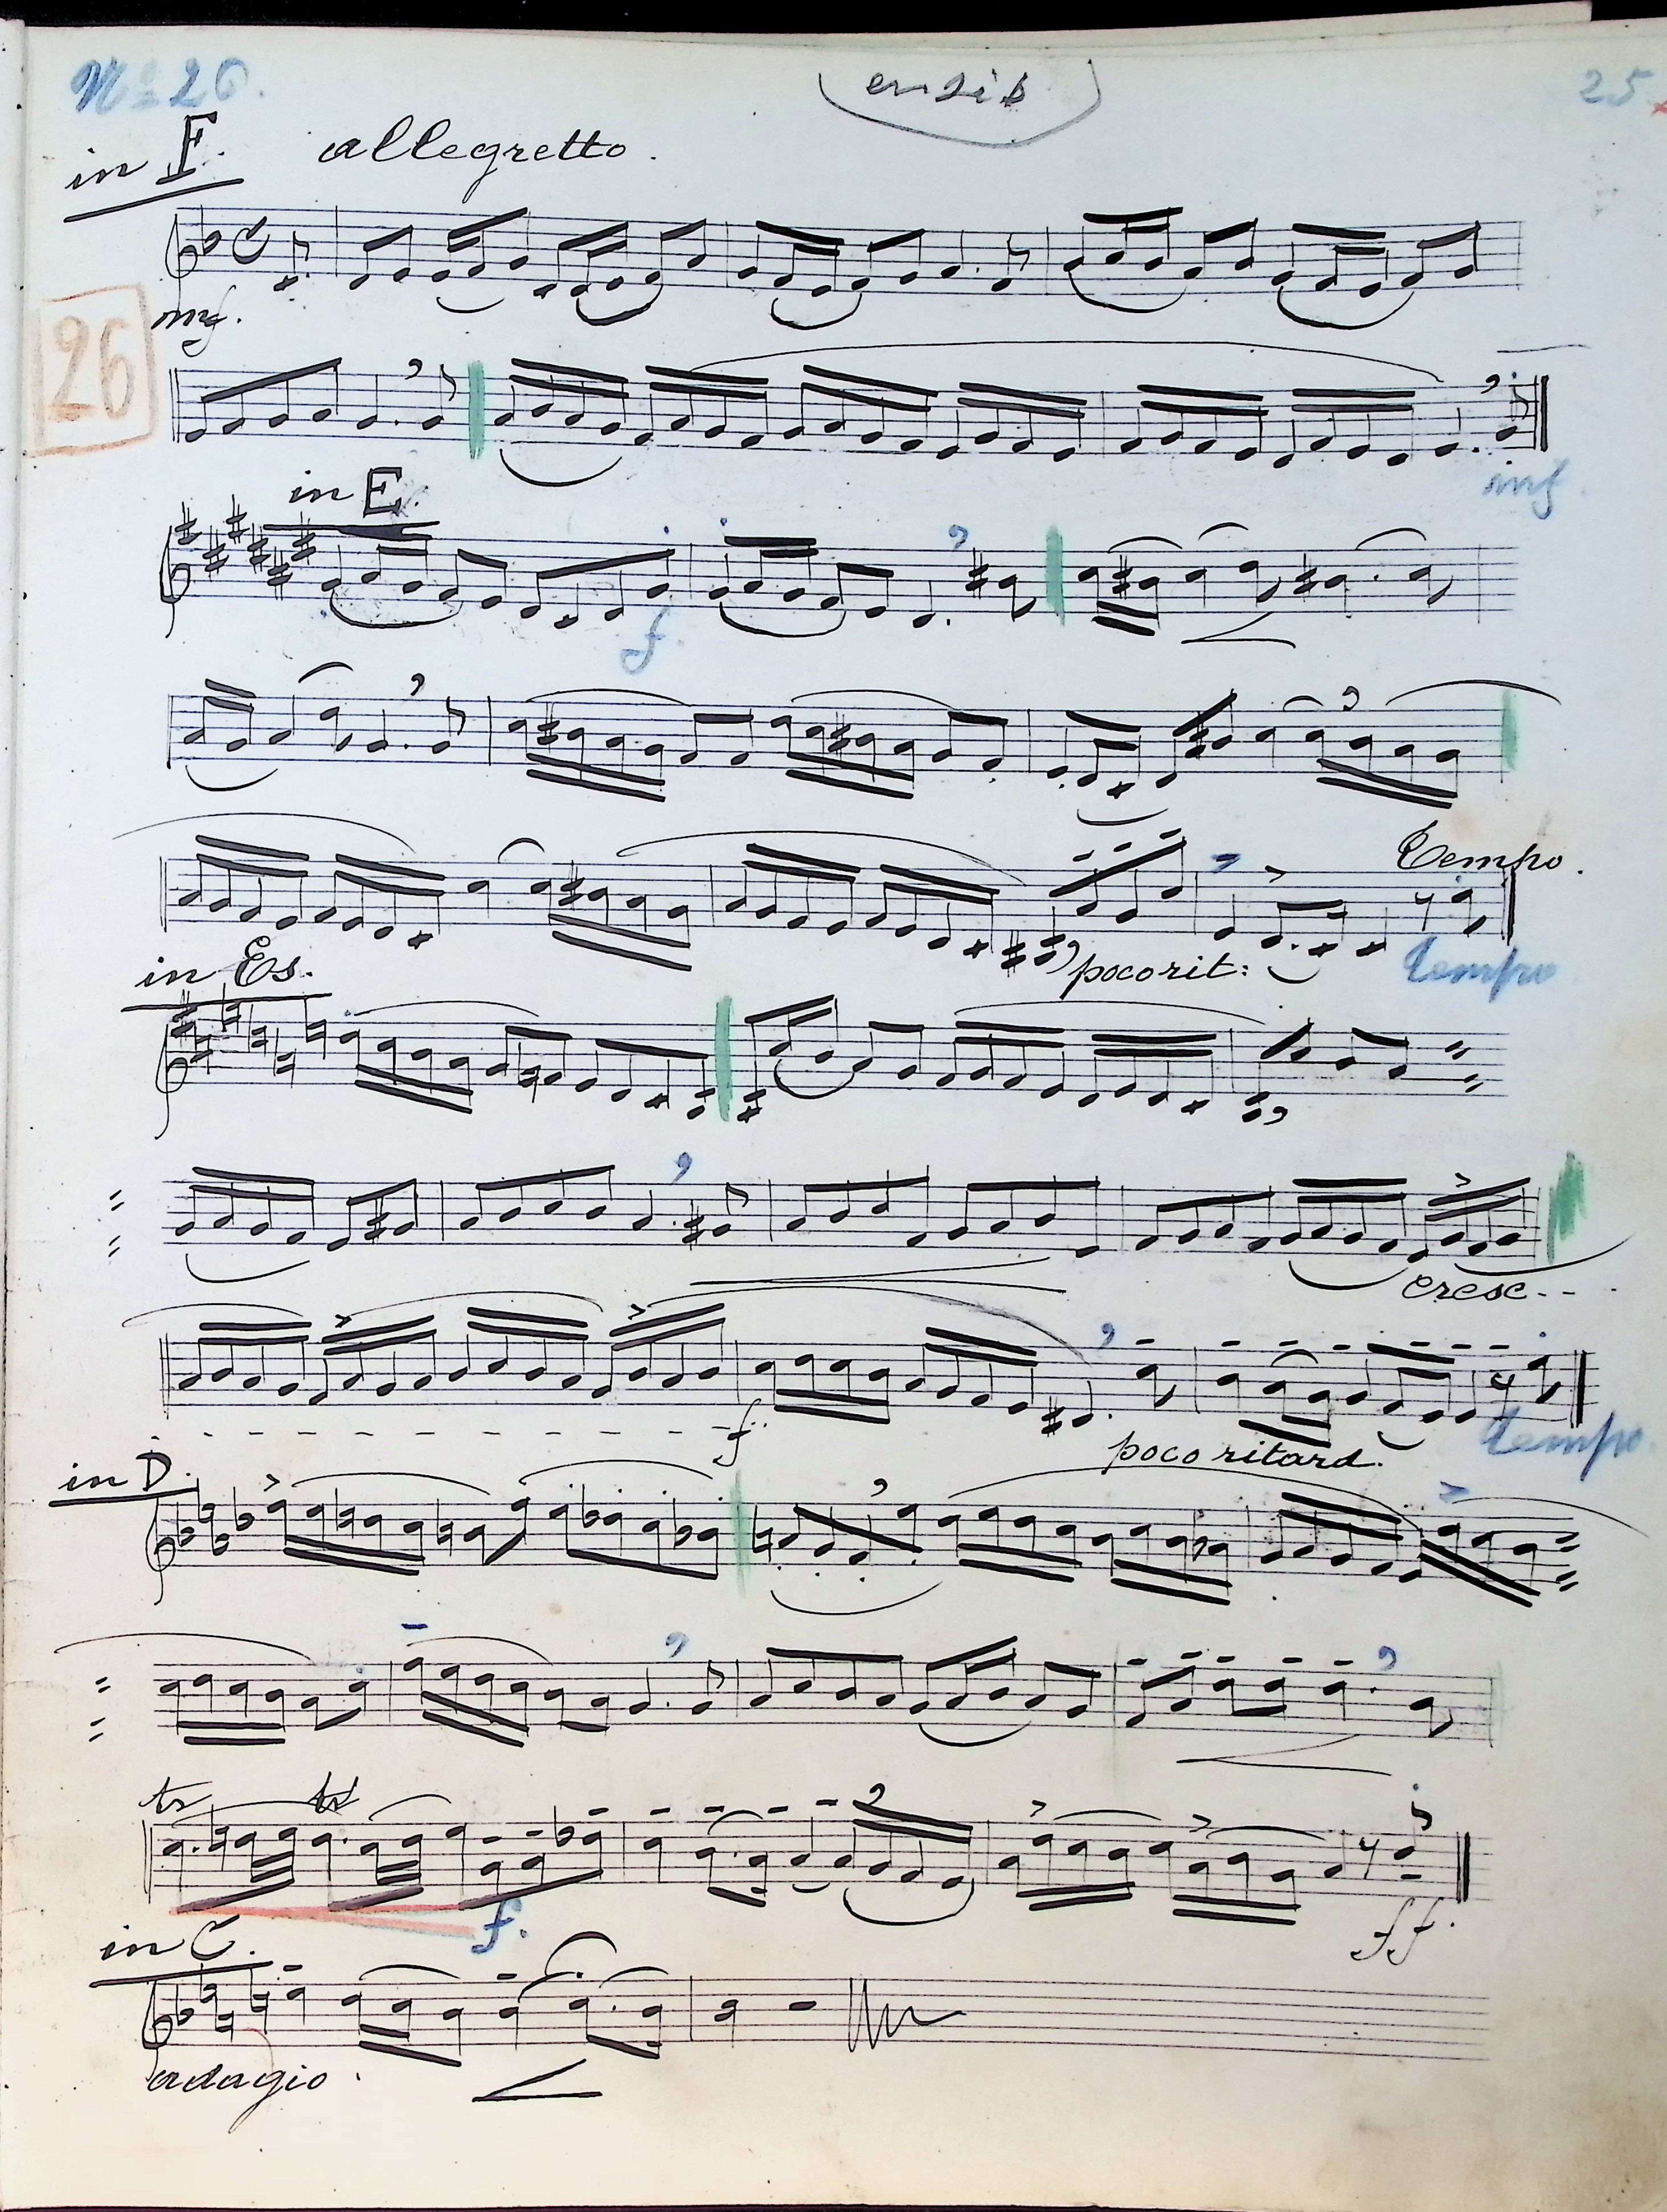 Nº 26.
25
in F. allegretto.
mf.
26
mf
in E.
f.
Tempo.
poco rit:
tempo
in Es.
cresc - -
f.
poco ritard.
tempo
in D.
tr tr
f.
ff.
in C.
adagio.